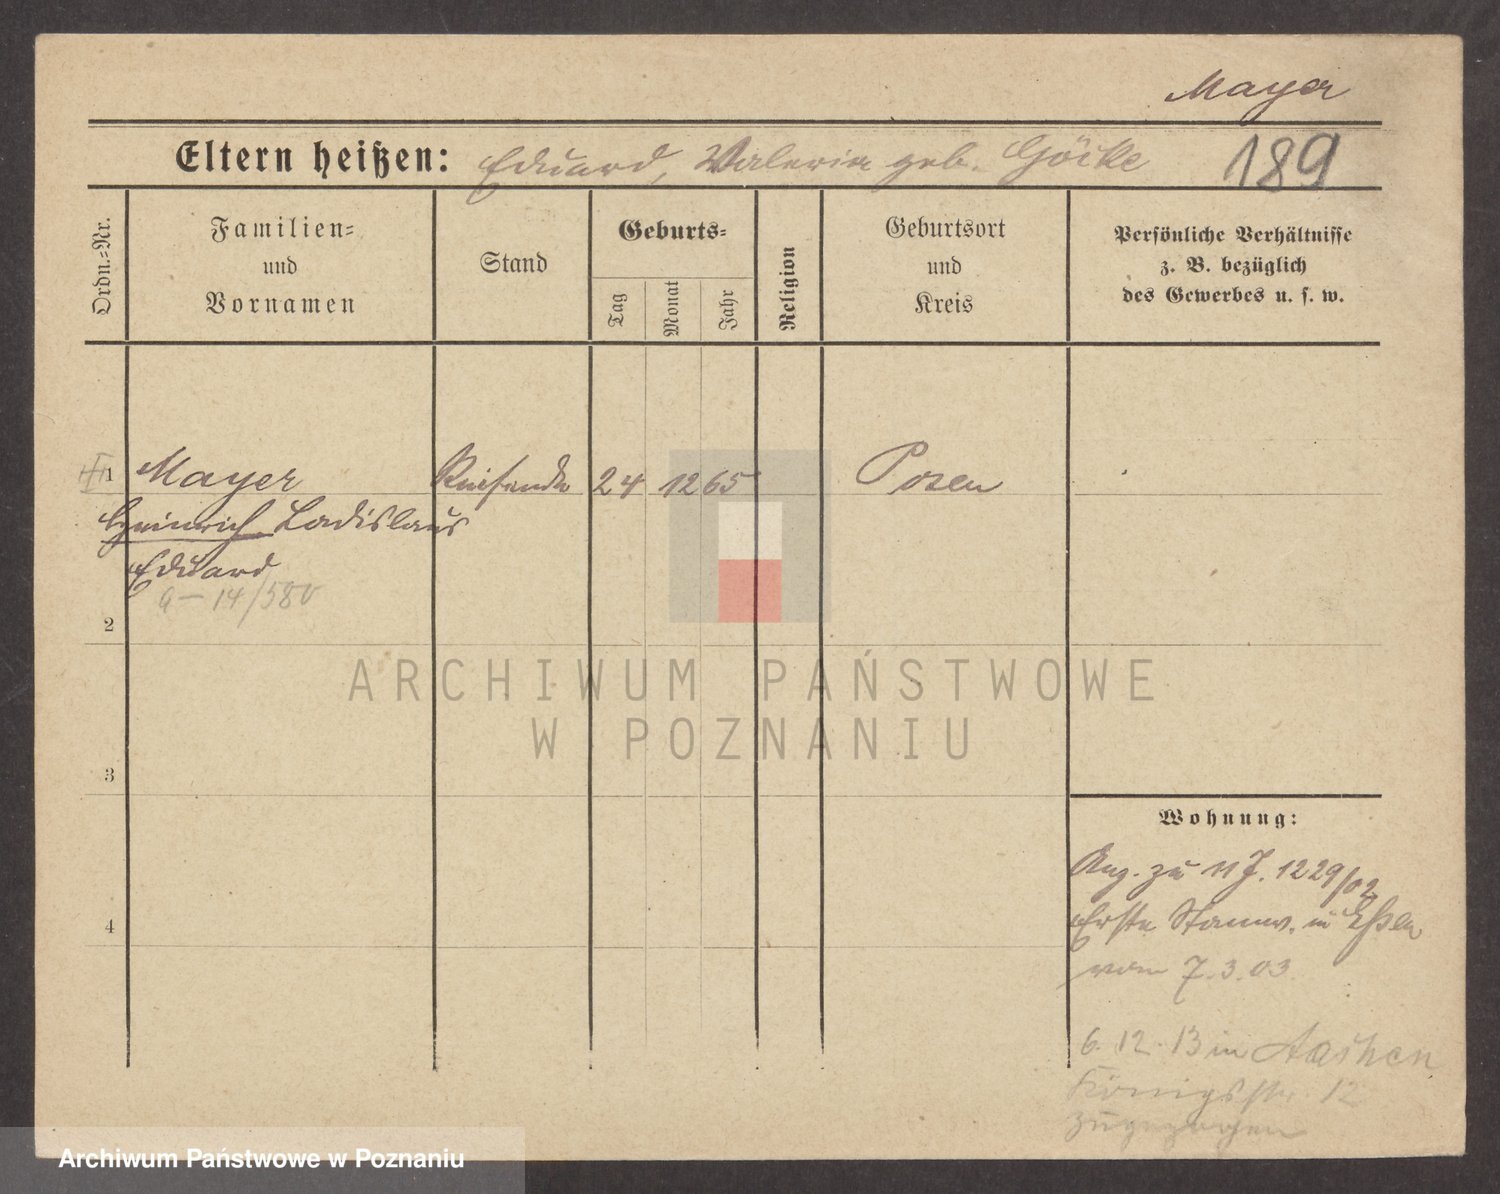 Mayer
Eltern heißen: Eduard, Valeria geb. Göcke 189
Ordn.-Nr.
Familien-
und
Vornamen
Stand
Geburts-
Tag
Monat
Jahr
Religion
Geburtsort
und
Kreis
Persönliche Verhältnisse
z. B. bezüglich
des Gewerbes u. s. w.
1 Mayer Reisender 24 12 65 Posen
Heinrich Ladislaus
Eduard
a – 14/580
2
ARCHIWUM PAŃSTWOWE
W POZNANIU
3
Wohnung:
Ang. zu 11 J. 1229/02
4
Erste Stamw. in Essen
vom 7.3.03
6. 12. 13 in Aachen
Königsstr. 12
zugezogen
Archiwum Państwowe w Poznaniu